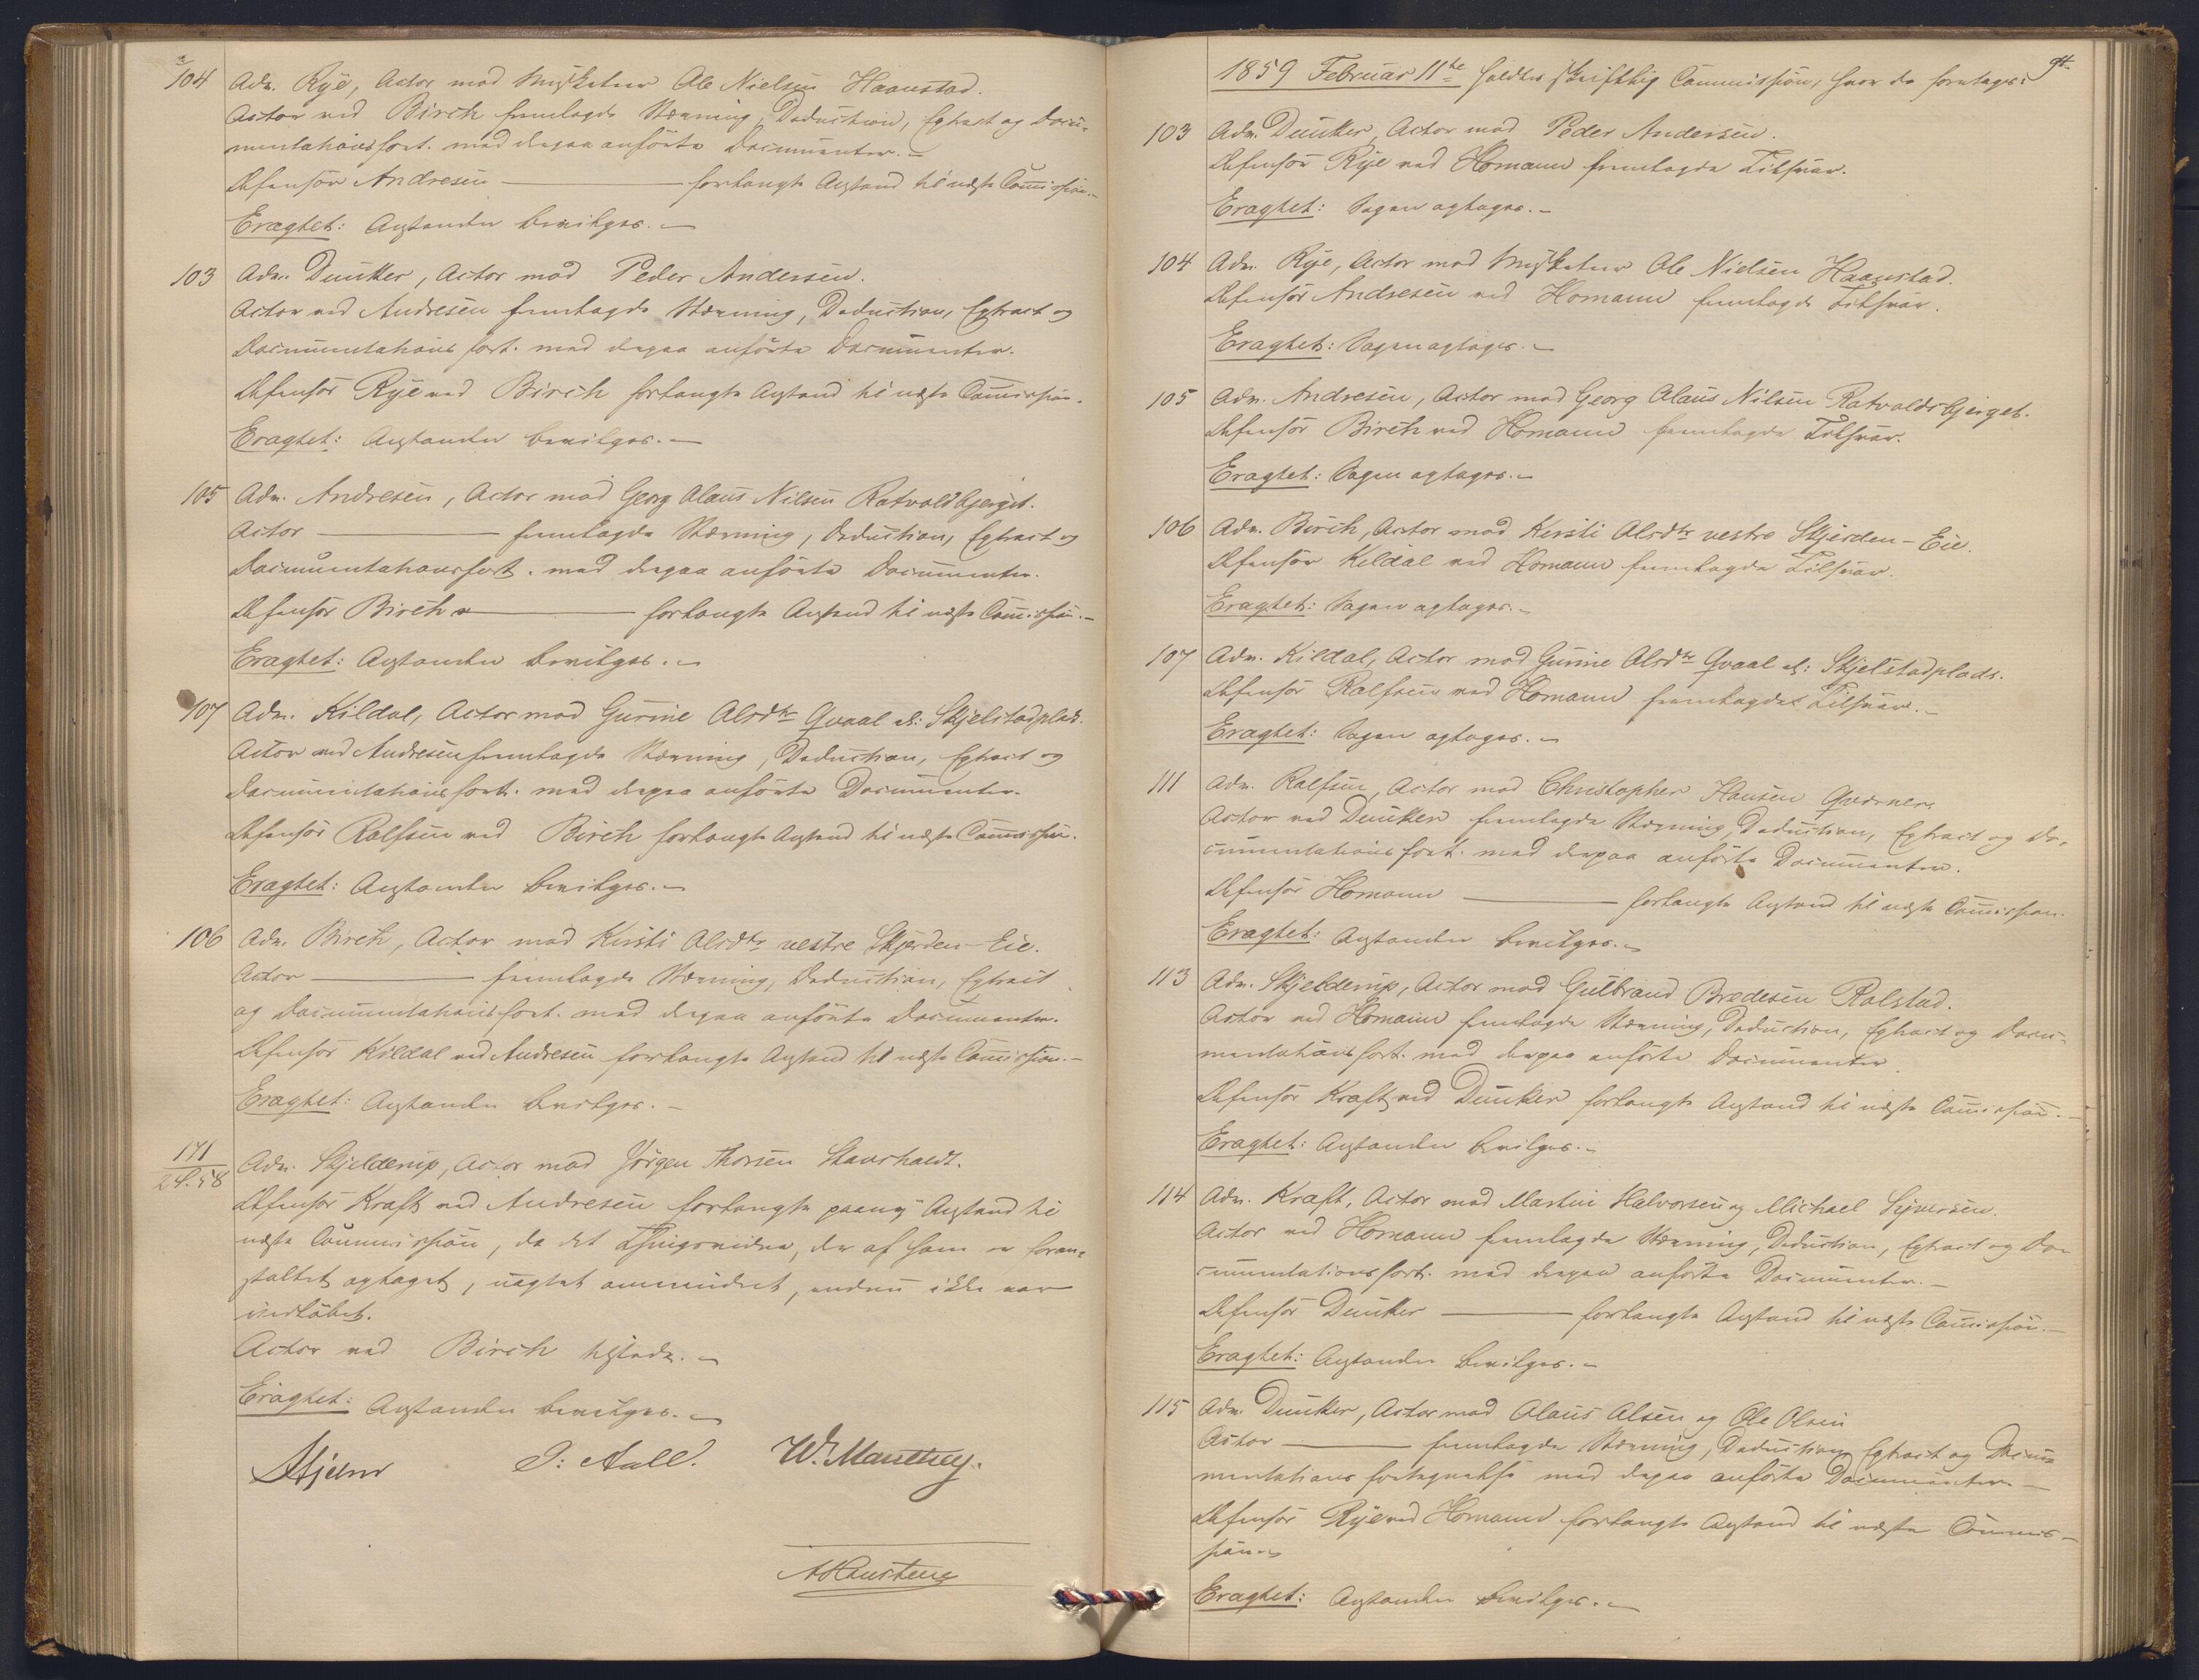 104 Adv. Rye, Actor mod Musketeer Ole Nielsen Haanstad.
Actor ved Birch fremlagde Stævning, Deduction, Extract og Docu-
mentationsfort. med derpaa anførte Documenter. -
Defensor Andresen ——— forlangte Anstand til næste Commission. -
Eragtet: Anstanden bevilges. -
103 Adv. Dunker, Actor mod Peder Andersen.
Actor ved Andresen fremlagde Stævning, Deduction, Extract og
Documentations fort. med derpaa anførte Documenter.
Defensor Rye ved Birch forlangte Anstand til næste Commission.
Eragtet: Anstanden bevilges. -
105 Adv. Andresen, Actor mod Georg Olaus Nilsen Ratvoldbjerget.
Actor ——— fremlagde Stævning, Deduction, Extract og
Documentationsfort. med derpaa anførte Documenter.
Defensor Birch ——— forlangte Anstand til næste Commission. -
Eragtet: Anstanden bevilges. -
107 Adv. Kildal, Actor mod Gurine Olsdtr Qvaal al: Skjelstadplads.
Actor ved Andresen fremlagde Stævning, Deduction, Extract og
Documentationsfort. med derpaa anførte Documenter.
Defensor Rolfsen ved Birch forlangte Anstand til næste Commission.
Eragtet: Anstanden bevilges. -
106 Adv. Birch, Actor mod Kirsti Olsdtr vestre Skjerden-Eie.
Actor ——— fremlagde Stævning, Deduction, Extract
og Documentationsfort. med derpaa anførte Documenter.
Defensor Kildal ved Andresen forlangte Anstand til næste Commission. -
Eragtet: Anstanden bevilges. -
171
24.58 Adv. Skjelderup, Actor mod Jørgen Thorsen Stavsholdt.
Defensor Kraft ved Andresen forlangte paany Anstand til
næste Commission, da det Thingsvidne, der af ham er foran-
staltet optaget, uagtet anmeldet, endnu ikke var
indløbet.
Actor ved Birch tilstede. -
Eragtet: Anstanden bevilges. -
Hjelm J: Aall. W. Manthey.
1859 Februar 11te holdtes skriftlig Commission, hvor da foretages:
103 Adv. Dunker, Actor mod Peder Andersen.
Defensor Rye ved Homann fremlagde Tilsvar.
Eragtet: Sagen optages. -
104 Adv. Rye, Actor mod Musketeer Ole Nielsen Haanstad.
Defensor Andresen ved Homann fremlagde Tilsvar.
Eragtet: Sagen optages. -
105 Adv. Andresen, Actor mod Georg Olaus Nilsen Ratvoldsbjerget.
Defensor Birch ved Homann fremlagde Tilsvar.
Eragtet: Sagen optages. -
106 Adv. Birch, Actor mod Kirsti Olsdtr vestre Skjerden-Eie.
Defensor Kildal ved Homann fremlagde Tilsvar.
Eragtet: Sagen optages. -
107 Adv. Kildal, Actor mod Gurine Olsdtr Qvaal al: Skjelstadplads.
Defensor Rolfsen ved Homann fremlagde Tilsvar. -
Eragtet: Sagen optages. -
111 Adv. Rolfsen, Actor mod Christopher Hansen Qværner.
Actor ved Dunker fremlagde Stævning, Deduction, Extract og Do-
cumentationsfort. med derpaa anførte Documenter.
Defensor Homann ——— forlangte Anstand til næste Commission.
Eragtet: Anstanden bevilges. -
113 Adv. Skjelderup, Actor mod Gulbrand Bredesen Rolstad.
Actor ved Homann fremlagde Stævning, Deduction, Extract og Docu-
mentationsfort. med derpaa anførte Documenter.
Defensor Kraft ved Dunker forlangte Anstand til næste Commission. -
Eragtet: Anstanden bevilges. -
114 Adv. Kraft, Actor mod Martin Halvorsen og Michael Syversen.
Actor ved Homann fremlagde Stævning, Deduction, Extract og Do-
cumentationsfort. med derpaa anførte Documenter. -
Defensor Dunker ——— forlangte Anstand til næste Commission. -
Eragtet: Anstanden bevilges. -
115 Adv. Dunker, Actor mod Olaus Olsen og Ole Olsen
Actor ——— fremlagde Stævning, Deduction, Extract og Docu-
mentations fortegnelse med derpaa anførte Documenter. -
Defensor Rye ved Homann forlangte Anstand til næste Commis-
sion. -
Eragtet: Anstanden bevilges. -